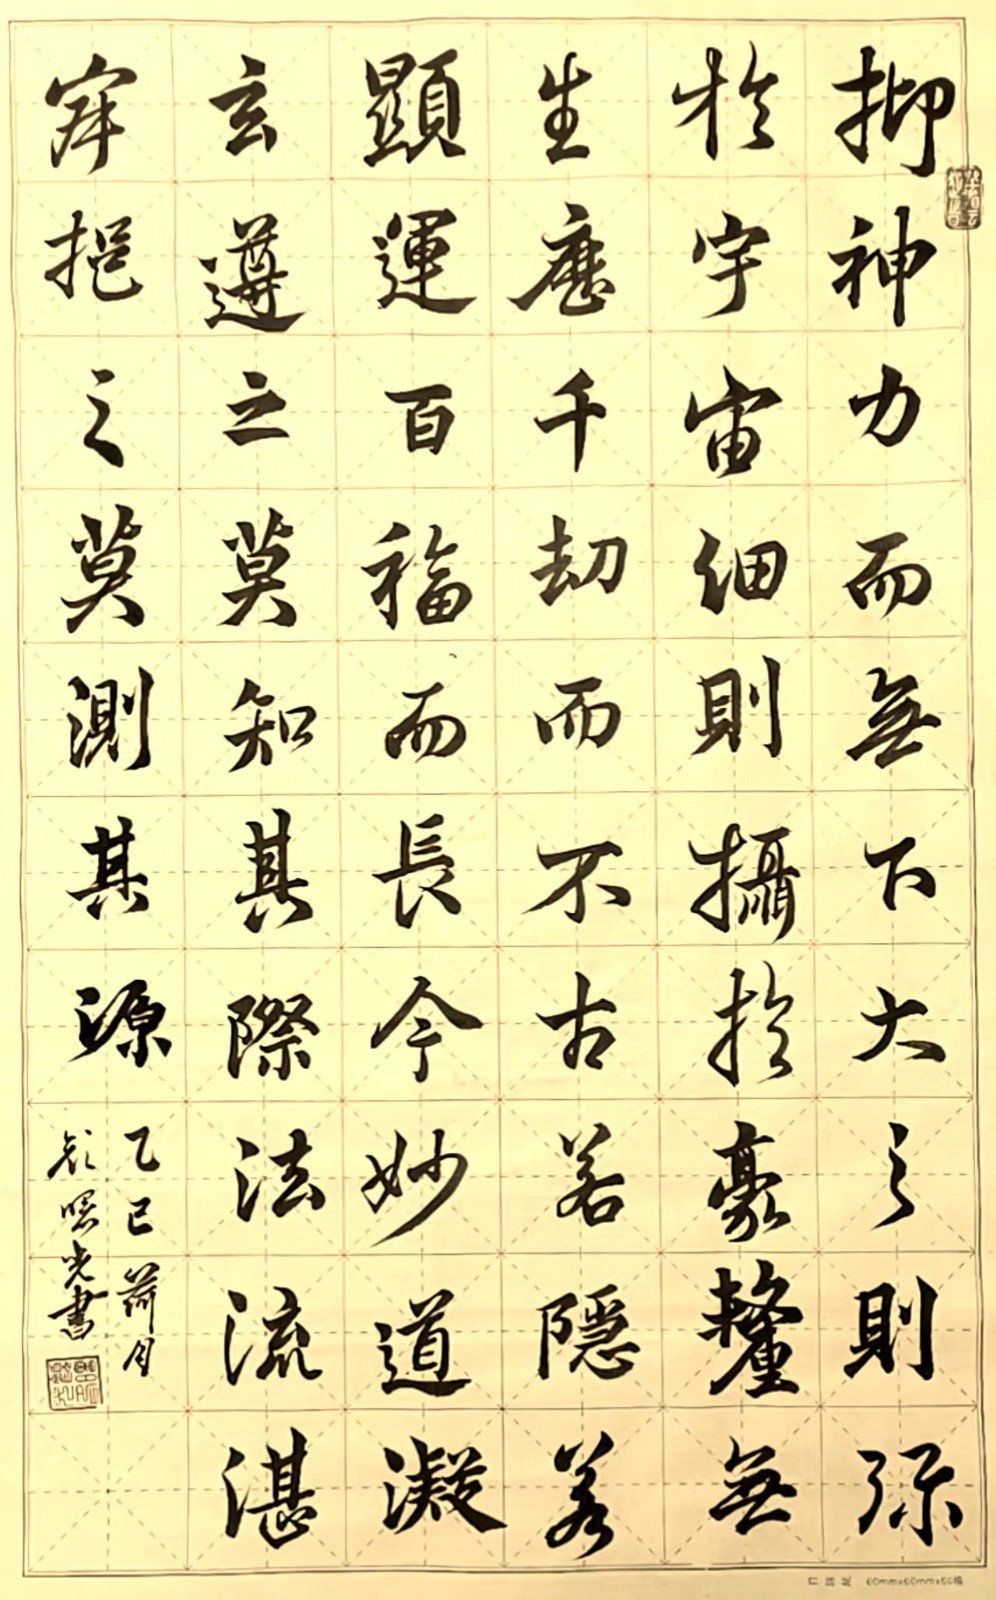 抑神力而無下大之則彌
於宇宙細則攝於豪釐無
生歷千劫而不古若隱若
顯運百福而長今妙道凝
玄遵之莫知其際法流湛
寂挹之莫測其源
乙巳荷月
光書
60mm×60mm×60格